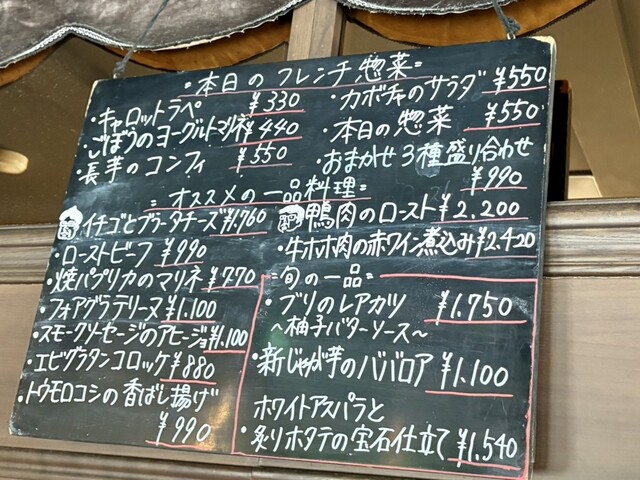 =本日のフレンチ惣菜=
・キャロットラペ ¥330
・ごぼうのヨーグルトマリネ ¥440
・長芋のコンフィ ¥550
・カボチャのサラダ ¥550
・本日の惣菜 ¥550
・おまかせ3種盛り合わせ
¥990
=オススメの一品料理=
イチゴとブラータチーズ ¥1,760
・ローストビーフ ¥990
・焼パプリカのマリネ ¥770
・フォアグラテリーヌ ¥1,100
・スモークソーセージのアヒージョ ¥1,100
・エビグラタンコロッケ ¥880
・トウモロコシの香ばし揚げ
¥990
鴨肉のロースト ¥2,200
・牛ホホ肉の赤ワイン煮込み ¥2,420
=旬の一品=
・ブリのレアカツ ¥1,750
〜柚子バターソース〜
・新じゃが芋のババロア ¥1,100
ホワイトアスパラと
・炙りホタテの宝石仕立て ¥1,540